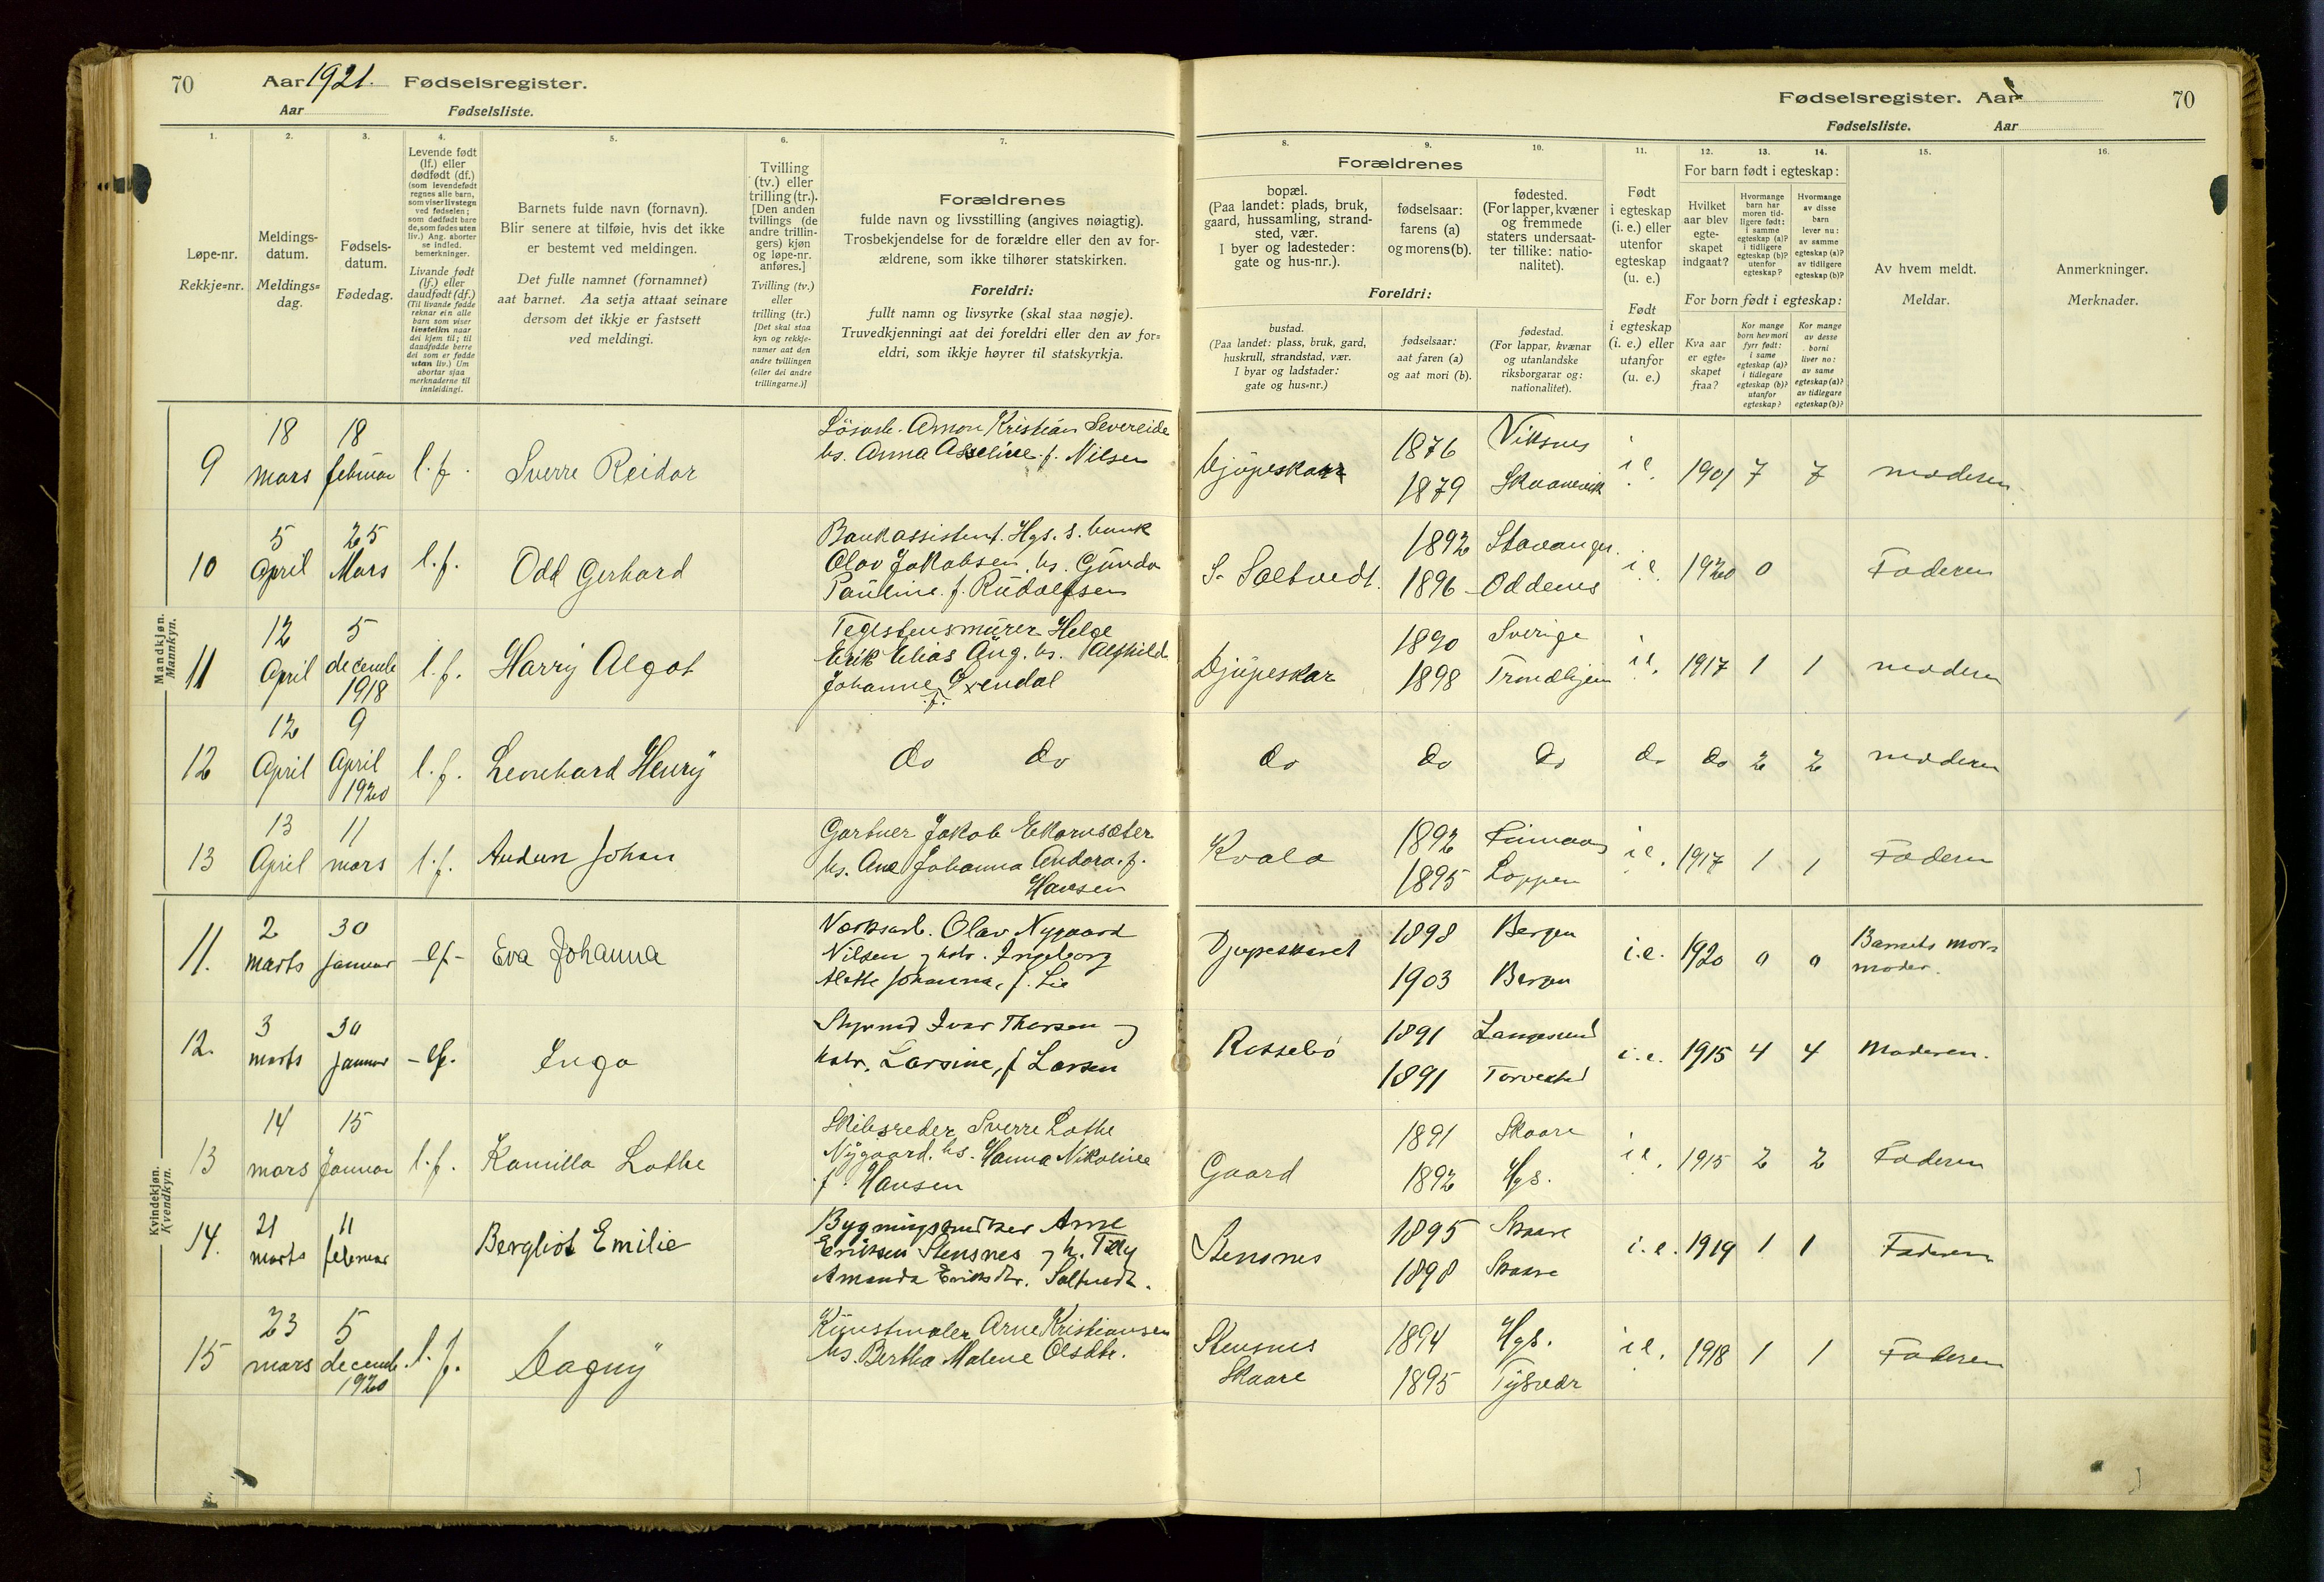 70 Aar 1921. Fødselsregister.
Aar Fødselsliste.
Fødselsregister. Aar 70
Fødselsliste. Aar
1. 2. 3. 4. 5. 6. 7.
Løpe-nr.
Rekkje=nr.
Meldings-
datum.
Meldings=
dag.
Fødsels-
datum.
Fødedag.
Levende født
(lf.) eller
dødfødt (df.)
(som levendefødt
regnes alle barn,
som viser livstegn
ved fødselen;
som dødfødt bare
de, som fødes uten
liv.) Ang. aborter
se indled.
bemerkninger.
Livande født
(lf.) eller
daudfødt (df.)
(Til livande fødde
reknar ein alle
barn som viser
livsteikn naar
dei kjem til; til
daudfødde berre
dei som er fødde
utan liv.) Um
abortar sjaa
merknaderne til
innleidingi.
Barnets fulde navn (fornavn).
Blir senere at tilføie, hvis det ikke
er bestemt ved meldingen.
Det fulle namnet (fornamnet)
aat barnet. Aa setja attaat seinare
dersom det ikkje er fastsett
ved meldingi.
Tvilling
(tv.) eller
trilling (tr.).
[Den anden
tvillings (de
andre trillin-
gers) kjøn
og løpe-nr.
anføres.]
Tvilling (tv.)
eller
trilling (tr.)
[Det skal staa
kyn og rekkje-
numer aat den
andre tvillingen
(eller dei andre
trillingarne.)]
Forældrenes
fulde navn og livsstilling (angives nøiagtig).
Trosbekjendelse for de forældre eller den av for-
ældrene, som ikke tilhører statskirken.
Foreldri:
fullt namn og livsyrke (skal staa nøgje).
Truvedkjenningi aat dei foreldri eller den av for=
eldri, som ikkje høyrer til statskyrkja.
8. 9. 10. 11. 12. 13. 14. 15. 16.
Forældrenes
bopæl.
(Paa landet: plads, bruk,
gaard, hussamling, strand-
sted, vær.
I byer og ladesteder:
gate og hus-nr.).
fødselsaar:
farens (a)
og morens (b).
fødested.
(For lapper, kvæner
og fremmede
staters undersaat-
ter tillike: natio-
nalitet).
Foreldri:
bustad.
(Paa landet: plass, bruk, gard,
huskrull, strandstad, vær.
I byar og ladstader:
gate og hus=nr.)
fødselsaar:
aat faren (a)
og aat mori (b).
fødestad.
(For lappar, kvænar
og utanlandske
riksborgarar og:
nationalitet).
Født
i egteskap
(i. e.) eller
utenfor
egteskap
(u. e.)
Født
i egteskap
(i. e.) eller
utanfor
(u. e.)
For barn født i egteskap:
Hvilket
aar blev
egte-
skapet
indgaat?
Hvormange
barn har
moren tid-
ligere født:
i samme
egteskap (a)?
i tidligere
egteskap (b)?
utenfor
egteskap?
Hvormange
av disse
barn
lever nu:
av samme
egteskap (a)?
av tidligere
egteskap (b)?
For born født i egteskap:
Kva aar
er egte=
skapet
fraa?
Kor mange
born hev mori
fyrr født:
i same
egteskap (a)?
i tidlegare
egteskap (b)?
utanfor
egteskap?
Kor mange
av desse
borni
liver no:
av same
egteskap (a)?
av tidlegare
egteskap (b)?
Av hvem meldt.
Meldar.
Anmerkninger.
Merknader.
Mandkjøn.
Mannkyn.
9 18 mars 18 februar l.f. Sverre Reidar
Løsarb. Amon Kristian Severeide
hs. Anna Asseline f. Nilsen
Djupeskar 1876 Viksnes i.e. 1901 7 7 moderen
1879 Skaanevik
10 5 April 25 Mars l.f. Odd Gerhard
Bankassistent. Hgs. s. bank
Olav Jakobsen, hs. Gunda
Pauline f. Rudolfsen
S. Saltvedt. 1892 Stavanger. i.e. 1920 0 Faderen
1896 Oddenes
11 12 April 5 decemb 1918 l.f. Harry Algot
Teglstensmurer Helge
Erik Elias Aug. hs. Alfhild
Johanne f. Oxendal
Djupeskar 1890 Sverige i.e. 1917 1 1 moderen
1898 Trondhjem
12 12 April 9 April 1920 l.f. Leonhard Henry
do do
do do do do do 2 2 moderen
13 13 April 11 mars l.f. Audun Johan
Gartner Jakob Ekornsæter
hs. Ane Johanna Andora. f.
Hansen
Kvala 1892 i.e. 1917 1 1 Faderen
1895 Loppen
Kvindekjøn.
Kvendkyn.
11. 2 marts 30 januar lf Eva Johanna
Værksarb. Olav Nygaard
Nilsen og hstr. Ingeborg
Alette Johanna, f. Lie
Djupeskaret 1898 Bergen i.e. 1920 0 0 Barnets mors
1903 Bergen moder.
12. 3 marts 30 januar lf. Inga
Styrmd Ivar Thorsen og
hstr. Larsine, f Larsen
Rossebø 1891 Langesund i.e. 1915 4 4 Moderen.
1891 Torvestad
13 14 mars 15 Januar l.f. Kamilla Lothe
Skibsreder Sverre Lothe
Nygaard. hs. Hanna Nikoline
f. Hansen
Gaard 1891 Skaare i.e. 1915 2 2 Faderen
1892 Hgs.
14. 21 marts 11 februar Bergliot Emilie
Bygningssnedker Arne
Eriksen Stensnes og h. Tilly
Amanda Eriksdtr. Saltvedt.
Stensnes 1895 Skaare i.e. 1919 1 1 Faderen
1898 Skaare
15 23 mars 5 decemb. 1920 l.f. Dagny
Kunstmaler Arne Kristiansen
hs. Bertha Malene Olsdtr.
Stensnes 1894 Hgs. i.e. 1918 1 1 Faderen
Skaare 1895 Tysvær